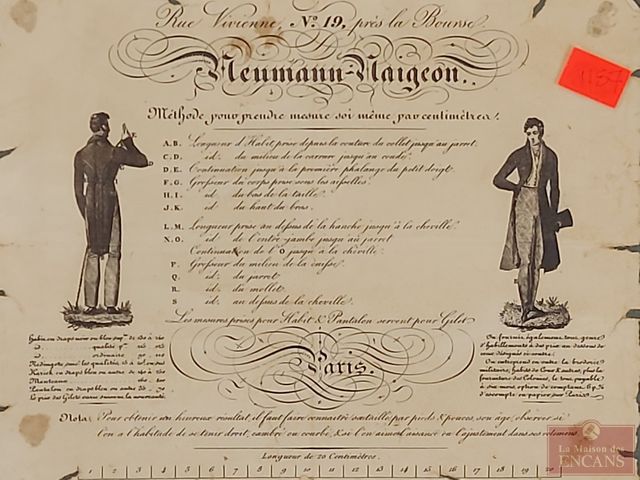 Rue Vivienne, No. 19, près la Bourse.
Neumann-Naigeon.
Méthode pour prendre mesure soi même par centimètres.
A.B. Longueur d'Habit prise depuis la couture du collet jusqu'au jarret.
C.D. id. du milieu de la carrure jusqu'au coude.
D.E. Continuation jusqu'à la première phalange du petit doigt.
F.G. Grosseur du corps prise sous les aisselles.
H.I. id. du bas de la taille.
J.K. id. du haut du bras.
L.M. Longueur prise au dessus de la hanche jusqu'à la cheville.
N.O. id. de l'entre-jambe jusqu'au jarret
Continuation de l'O jusqu'à la cheville.
P. Grosseur du milieu de la cuisse.
Q. id. du jarret.
R. id. du mollet.
S id. au dessus de la cheville.
Les mesures prises pour Habit & Pantalon servent pour Gilet
Habit en drap noir ou bleu
ordinaire
Redingote
Manteaux
Pantalon en drap bleu ou autre
Le prix des Gilets suivant la nouveauté
On fournit également tout genre
d'habillements à des prix au dessous de
ceux désignés ci contre.
On entreprend en outre la broderie
militaire, habits de Cour & autres, plus la
fourniture des Colonies, le tout payable
à six mois, option de comptant, 6 p %
d'escompte en papier sur Paris.
Paris.
Nota. Pour obtenir un heureux résultat, il faut faire connaitre sa taille par pieds & pouces, son âge, observer si
l'on a l'habitude de se tenir droit, cambré ou courbé, & si l'on aime l'aisance ou l'ajustement dans ses vêtemens.
Longueur de 20 Centimètres.
1 2 3 4 5 6 7 8 9 10 11 12 13 14 15 16 17 18 19 20
1134
La Maison des
ENCANS